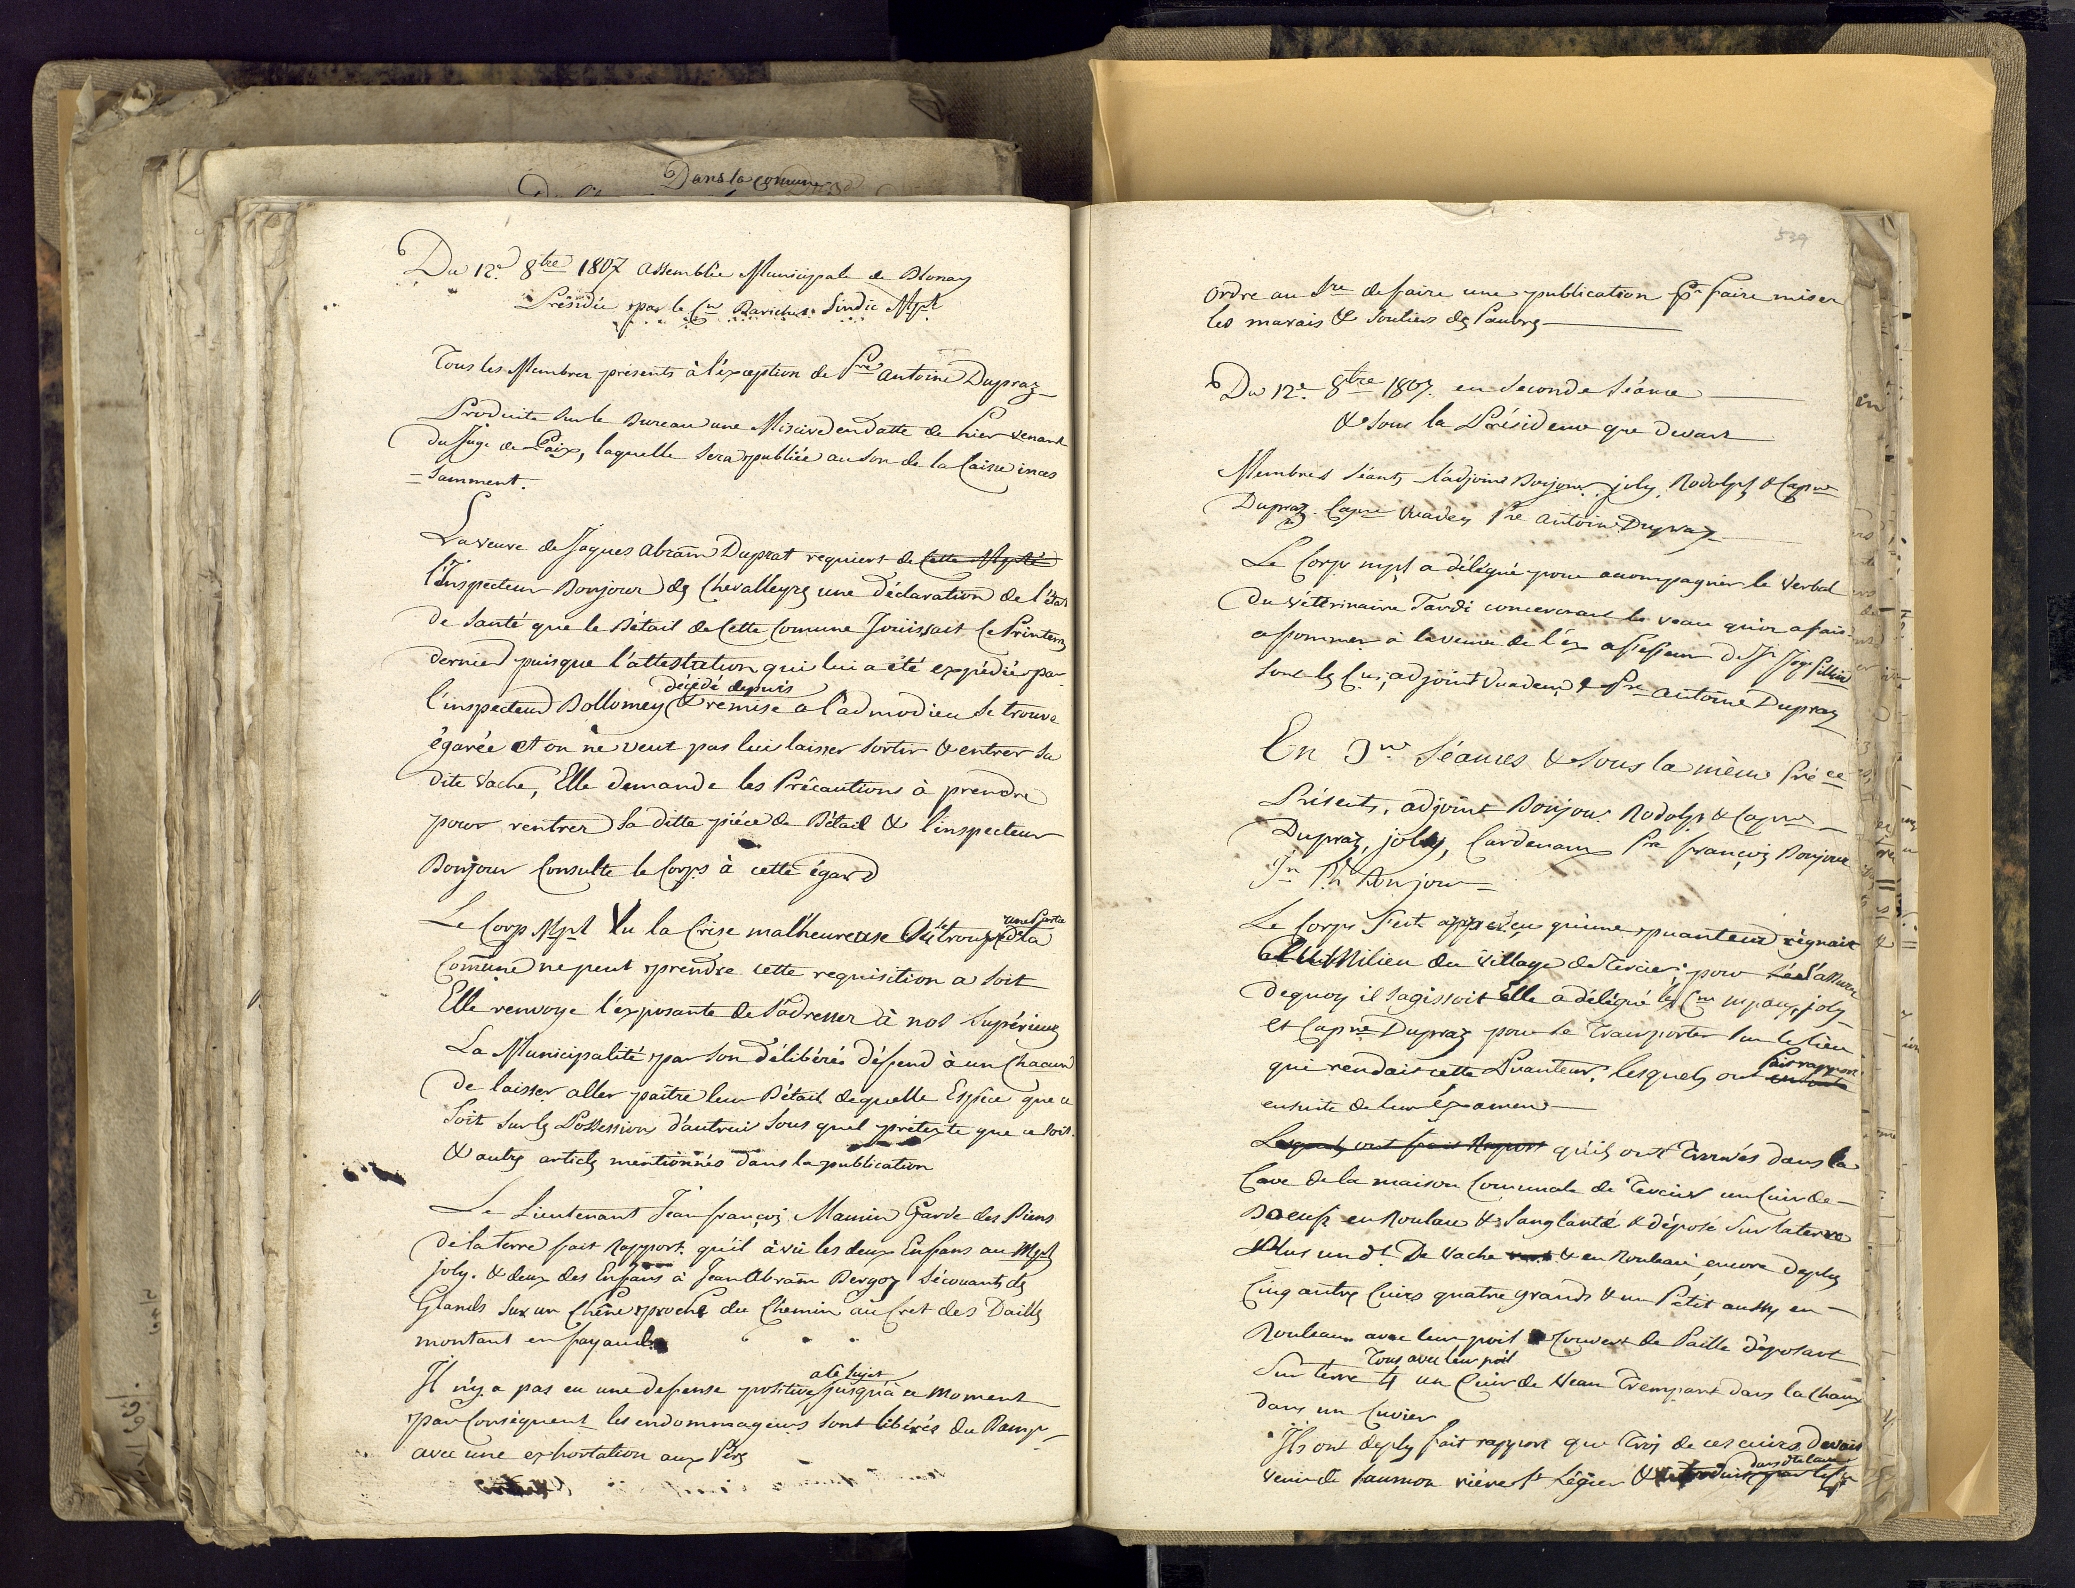 Dans la comune
Du 12e. 8bre 1807 assemblée Municipale de Blonay
Présidée par le Cn Sindic Mpl
Tous les Membres présents à l'éxception de Pre antoine Dupraz
Produite sur le Bureau une Missive en datte de hier venant
du Juge de Paix, laquelle sera publiée au son de la Caisse inces
=samment.
La veuve de Jaques abram Duprat requiert de Cette Mplté
l'Inspecteur Bonjour des Chevalleyres une déclaration de l'état
de santé que le Bétail de Cette Comune Jouissait Ce Printems
dernier puisque l'attestation qui lui a été expédiée par
décédé depuis
l'inspecteur Dollomey & remise a l'admodieu se trouve
égarée et on ne veut pas lui laisser sortir & entrer sa
dite vache, Elle demande les Précautions à prendre
pour rentrer sa ditte piéce de Bétail & l'inspecteur
Bonjour Consulte le Corps à cette égard
une Partie
Le Corp Mpl Vu la Crise malheureuse Où se trouve de la
Comune ne peut prendre cette requisition a soit
Elle renvoye l'exposante de s'adresser à nos Supérieurs
La Municipalité par son délibérés défend à un Chacun
de laisser aller paître leur Bétail de quelle Espece que ce
soit sur les Possession d'autrui sous quel prétexte que ce soit.
& autres articles mentionnés dans la publication
Le Lieutenant Jean françois Mamin Garde des Biens
de la terre fait rapport qu'il à vu les deux Enfans au Mpl
joly. & deux des Enfans à Jean Abram Bergoz sécouants des
Glands sur un Chêne proche du Chemin au Cret des Dailles
montant en fayaule
a ce sujet
Il n'y a pas eu une defense positive jusqu'à ce moment
par Conséquent les endommageurs sont libérés du Bamp
avec une exhortation aux Péres
539
Ordre au Sre de faire une publication pr faire miser
les marais & soutiers des Pauvres
Du 12e. 8bre 1807. en seconde séance
& sous la Présidence que devant
Membres séants l'adjoint Bonjour, joly, Rodolph & Capne
Dupraz Pre antoine Dupraz
Le Corps mpl a délégué pour acompagner le verbal
du vétérinaire Tardi concernant le veau qu'on a fait
assommer à la veuve de l'ex assesseur
sont les Cns adjoint & Pre antoine Dupraz
En 3me Séances & sous la même Préce
Présents, adjoint Bonjour Rodolph & Capne
Dupraz, joly, Cardenaux Pre françois Bonjour
Jn Ph Bonjour
Le Corps s'est apperçeu qu'une puanteur régnait
au Milieu du village de Tercier, pour s'assurer
de quoy il sagissoit Elle a délégué les Cns mpaux, joly
et Capne Dupraz pour se Transporter sur le lieu
fait rapport
que rendait cette Puanteur, lesquels ont ensuite
ensuite de leur éxamen
Lesquels ont fait Raport qu'ils ont Trouvés dans la
Cave de la maison Comunale de Tercier un Cuir de
Boeuf en Rouleau & sanglanté & déposé sur la terre
Plus un dt De vache & en Rouleau, encore de plus
Cinq autres Cuirs quatre grands & un Petit aussy en
Rouleaux avec leur poil & Couvert de Paille déposant
Tous avec leur poil
sur terre & un Cuir de Veau Trempant dans la Chaux
dans un Cuvier
Ils ont de plus fait rapport que Trois de ces cuirs devait
venir de Saumon riére St Légier &